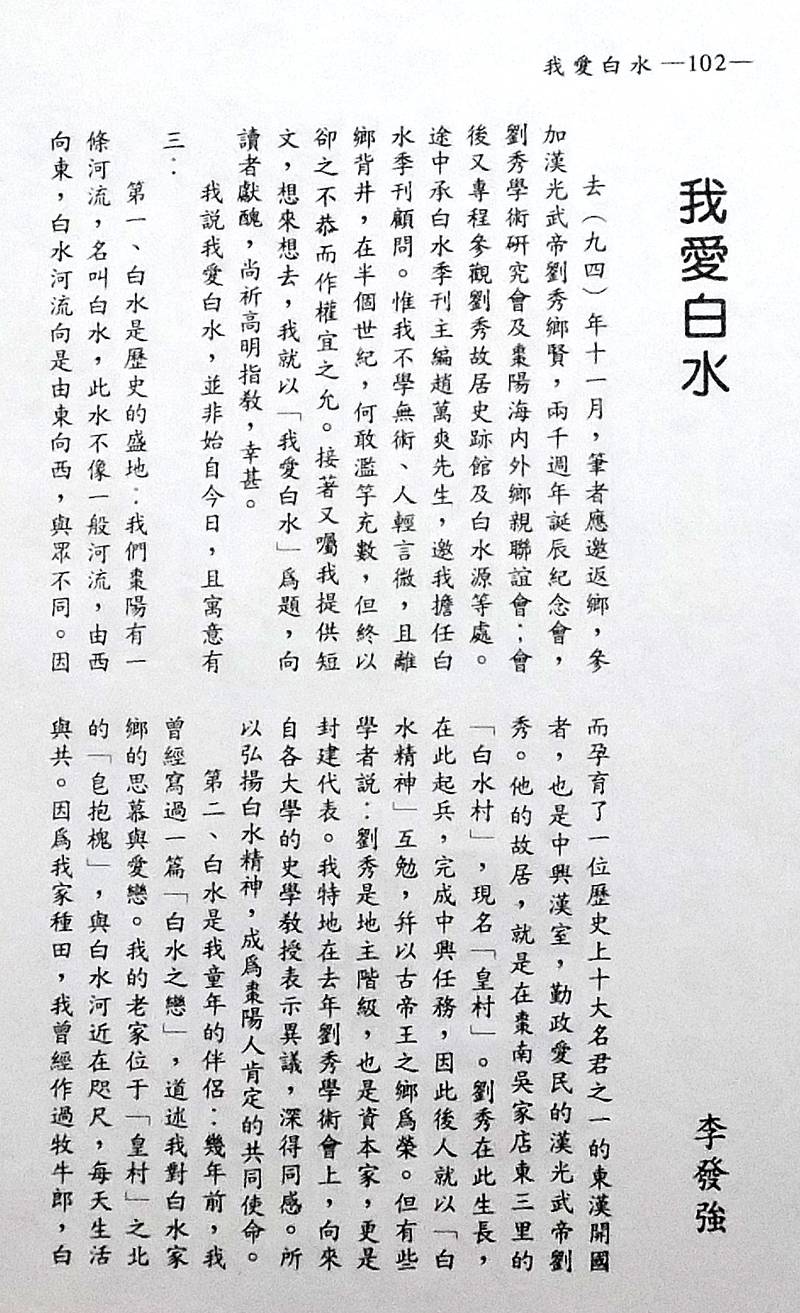 我愛白水 —102—
我愛白水
李發強
去(九四)年十一月，筆者應邀返鄉，參
加漢光武帝劉秀鄉賢，兩千週年誕辰紀念會，
劉秀學術研究會及棗陽海內外鄉親聯誼會；會
後又專程參觀劉秀故居史跡館及白水源等處。
途中承白水季刊主編趙萬爽先生，邀我擔任白
水季刊顧問。惟我不學無術、人輕言微，且離
鄉背井，在半個世紀，何敢濫竽充數，但終以
卻之不恭而作權宜之允。接著又囑我提供短
文，想來想去，我就以「我愛白水」爲題，向
讀者獻醜，尚祈高明指教，幸甚。
我説我愛白水，並非始自今日，且寓意有
三：
第一、白水是歷史的盛地：我們棗陽有一
條河流，名叫白水，此水不像一般河流，由西
向東，白水河流向是由東向西，與眾不同。因
而孕育了一位歷史上十大名君之一的東漢開國
者，也是中興漢室，勤政愛民的漢光武帝劉
秀。他的故居，就是在棗南吳家店東三里的
「白水村」，現名「皇村」。劉秀在此生長，
在此起兵，完成中興任務，因此後人就以「白
水精神」互勉，并以古帝王之鄉爲榮。但有些
學者説：劉秀是地主階級，也是資本家，更是
封建代表。我特地在去年劉秀學術會上，向來
自各大學的史學教授表示異議，深得同感。所
以弘揚白水精神，成爲棗陽人肯定的共同使命。
第二、白水是我童年的伴侶：幾年前，我
曾經寫過一篇「白水之戀」，道述我對白水家
鄉的思慕與愛戀。我的老家位于「皇村」之北
的「皂抱槐」，與白水河近在咫尺，每天生活
與共。因爲我家種田，我曾經作過牧牛郎，白